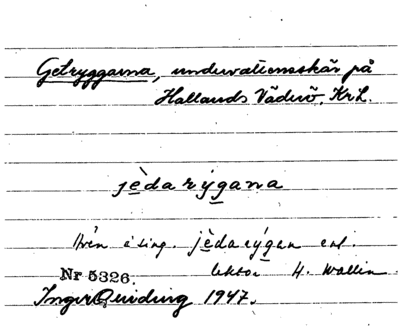 Getryggarna, undervattensskär på
Hallands Väderö, Krh.
jèda rýgana
Även i sing. jèda rýgen enl.
Nr 5326. lektor H. Wallin
Inger Quiding 1947.